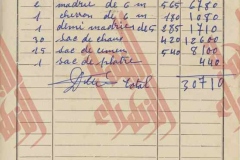 2 madrie de 6 m 565 6780
1 chevron de 6 m 180 1080
1 demi madries de 5 235 1710
30 sac de chaux 420 12600
15 sac de cimen 540 8100
1 sac de platre 440
Total 30710